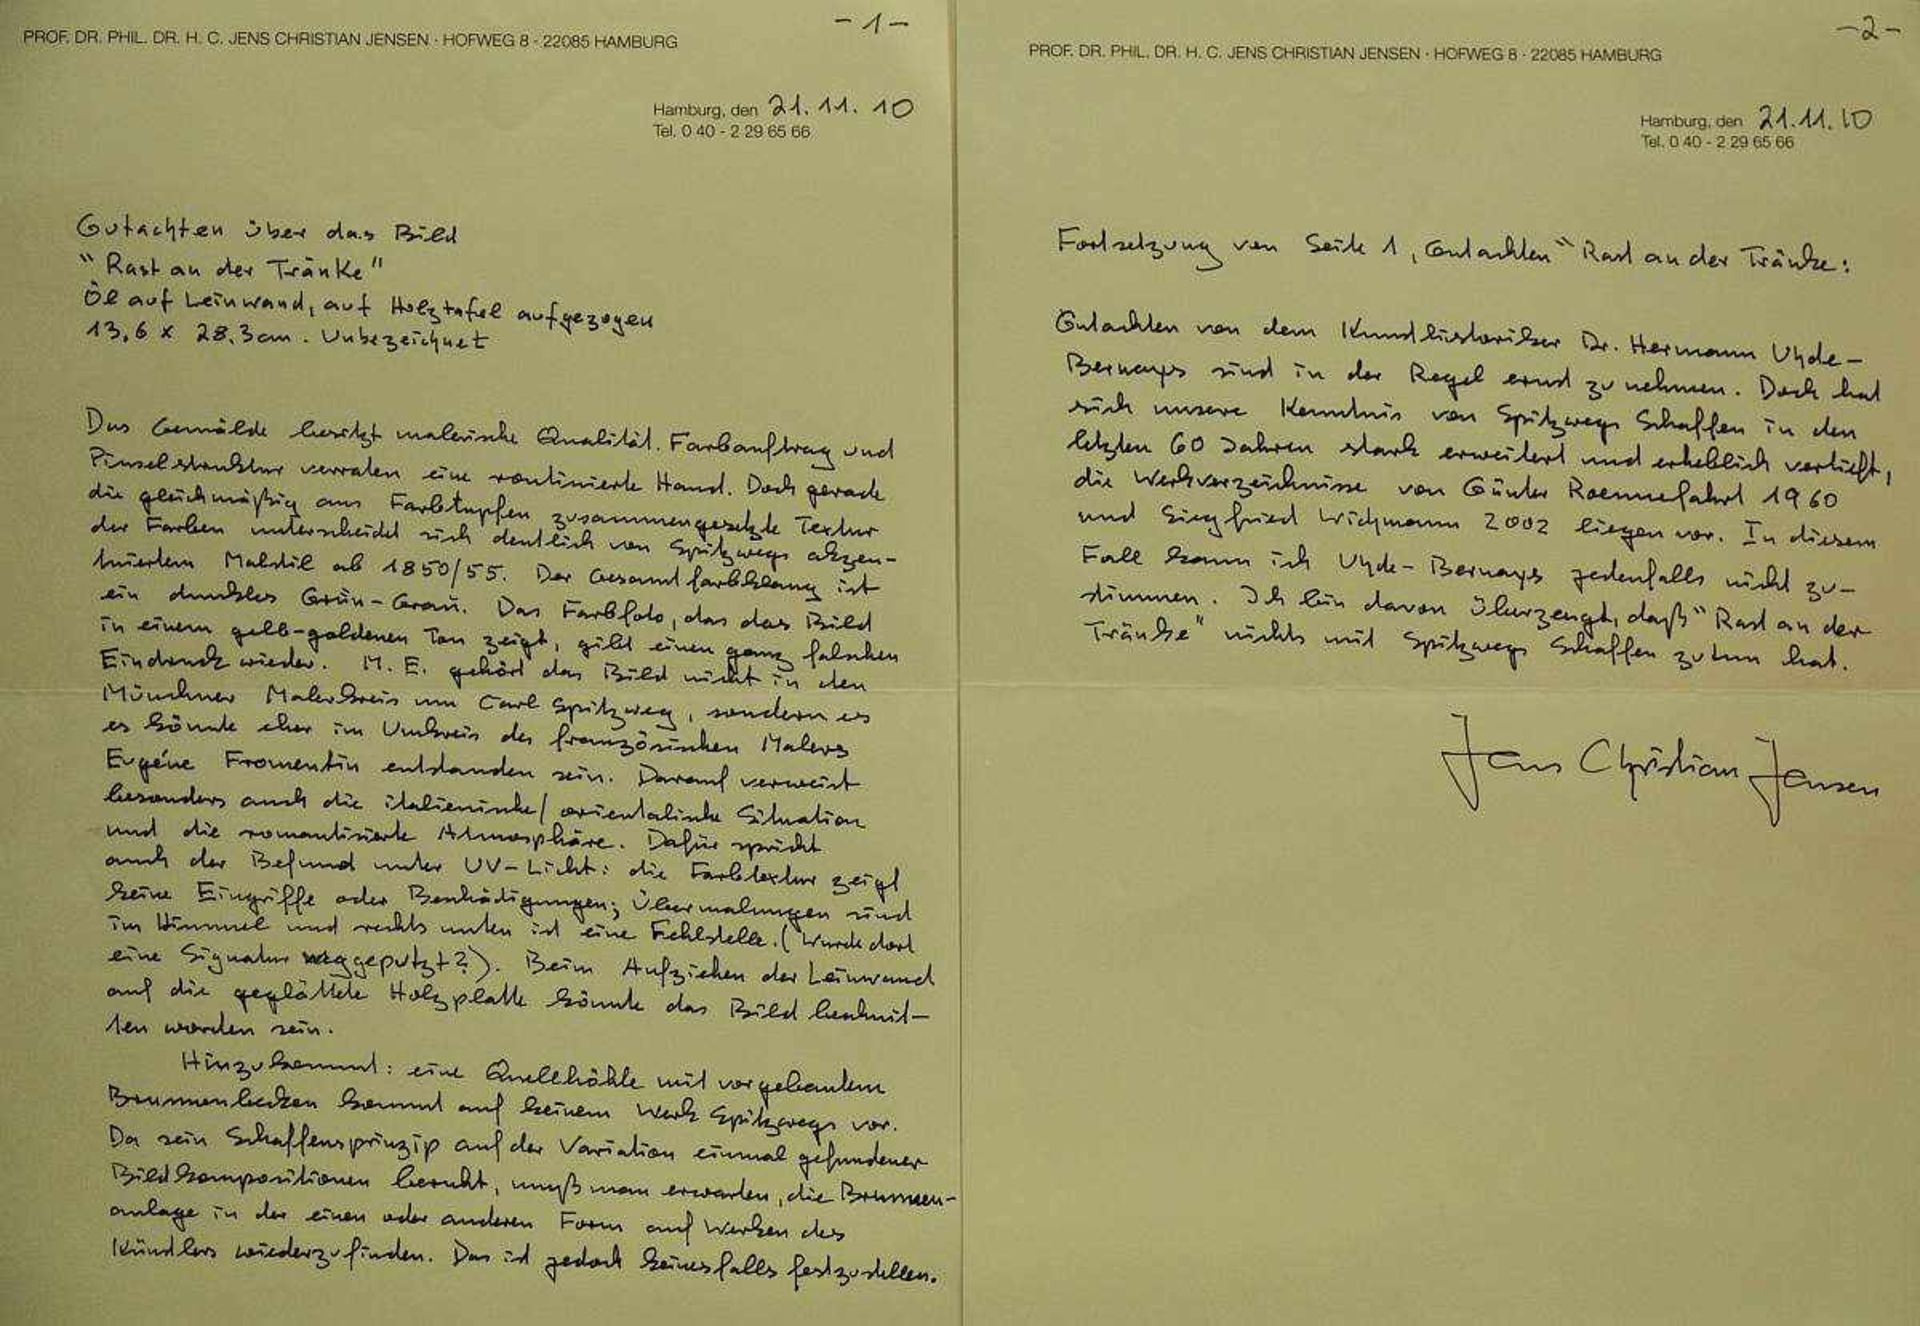 - 1 -
PROF. DR. PHIL. DR. H. C. JENS CHRISTIAN JENSEN · HOFWEG 8 · 22085 HAMBURG
Hamburg, den 21. 11. 10
Tel. 0 40 - 2 29 65 66
Gutachten über das Bild
"Rast an der Tränke"
Öl auf Leinwand, auf Holztafel aufgezogen
13,6 x 28.3 cm. Unbezeichnet
Das Gemälde besitzt malerische Qualität. Farbauftrag und
Pinselstruktur verraten eine routinierte Hand. Doch gerade
die gleichmäßig aus Farbtupfen zusammengesetzte Textur
der Farben unterscheidet sich deutlich von Spitzwegs akzen-
tuiertem Malstil ab 1850/55. Der Gesamtfarbklang ist
ein dunkles Grün-Grau. Das Farbfoto, das das Bild
in einem gelb-goldenen Ton zeigt, gibt einen ganz falschen
Eindruck wieder. M. E. gehört das Bild nicht in den
Münchner Malerkreis um Carl Spitzweg, sondern es
es könnte eher im Umkreis des französischen Malers
Eugéne Fromentin entstanden sein. Darauf verweist
besonders auch die italienische/orientalische Situation
und die romantisierte Atmosphäre. Dafür spricht
auch der Befund unter UV-Licht: die Farbtextur zeigt
keine Eingriffe oder Beschädigungen; Übermalungen sind
im Himmel und rechts unten ist eine Fehlstelle. (Wurde dort
eine Signatur weggeputzt?). Beim Aufziehen der Leinwand
auf die geglättete Holzplatte könnte das Bild beschnit-
ten worden sein.
Hinzukommt: eine Quellhöhle mit vorgebautem
Brunnenbecken kommt auf keinem Werk Spitzwegs vor.
Da sein Schaffensprinzip auf der Variation einmal gefundener
Bildkompositionen beruht, muß man erwarten, die Brunnen-
anlage in der einen oder anderen Form auf Werken des
Künstlers wiederzufinden. Das ist jedoch keinesfalls festzustellen.
- 2 -
PROF. DR. PHIL. DR. H. C. JENS CHRISTIAN JENSEN · HOFWEG 8 · 22085 HAMBURG
Hamburg, den 21.11.10
Tel. 0 40 - 2 29 65 66
Fortsetzung von Seite 1, Gutachten "Rast an der Tränke:
Gutachten von dem Kunsthistoriker Dr. Hermann Uhde-
Bernays sind in der Regel ernst zu nehmen. Doch hat
sich unsere Kenntnis von Spitzwegs Schaffen in den
letzten 60 Jahren stark erweitert und erheblich vertieft,
die Werkverzeichnisse von Günter Roennefahrt 1960
und Siegfried Wichmann 2002 liegen vor. In diesem
Fall kann ich Uhde-Bernays jedenfalls nicht zu-
stimmen. Ich bin davon überzeugt, daß "Rast an der
Tränke" nichts mit Spitzwegs Schaffen zu tun hat.
Jens Christian Jensen